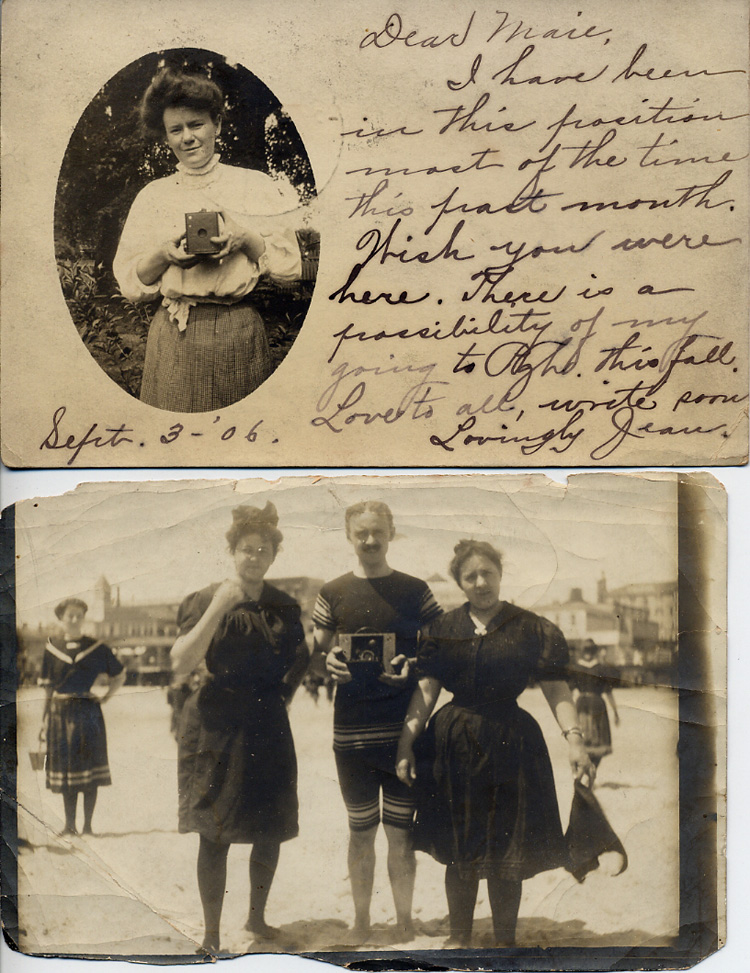 Dear Maie,
I have been
in this position
most of the time
this past month.
Wish you were
here. There is a
possibility of my
going to Pgh. this fall.
Love to all, write soon
Lovingly Jean.
Sept. 3-'06.